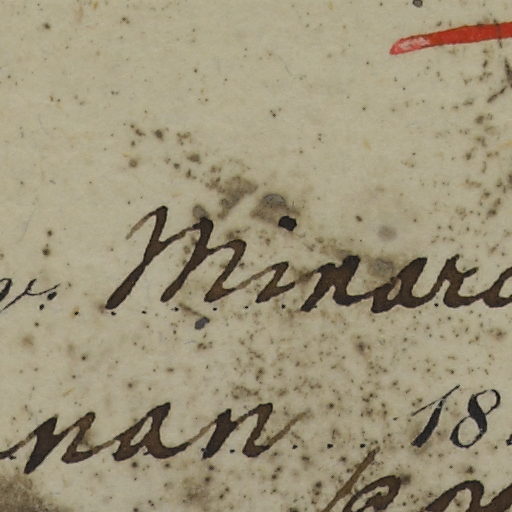 v. Minard
nan 18